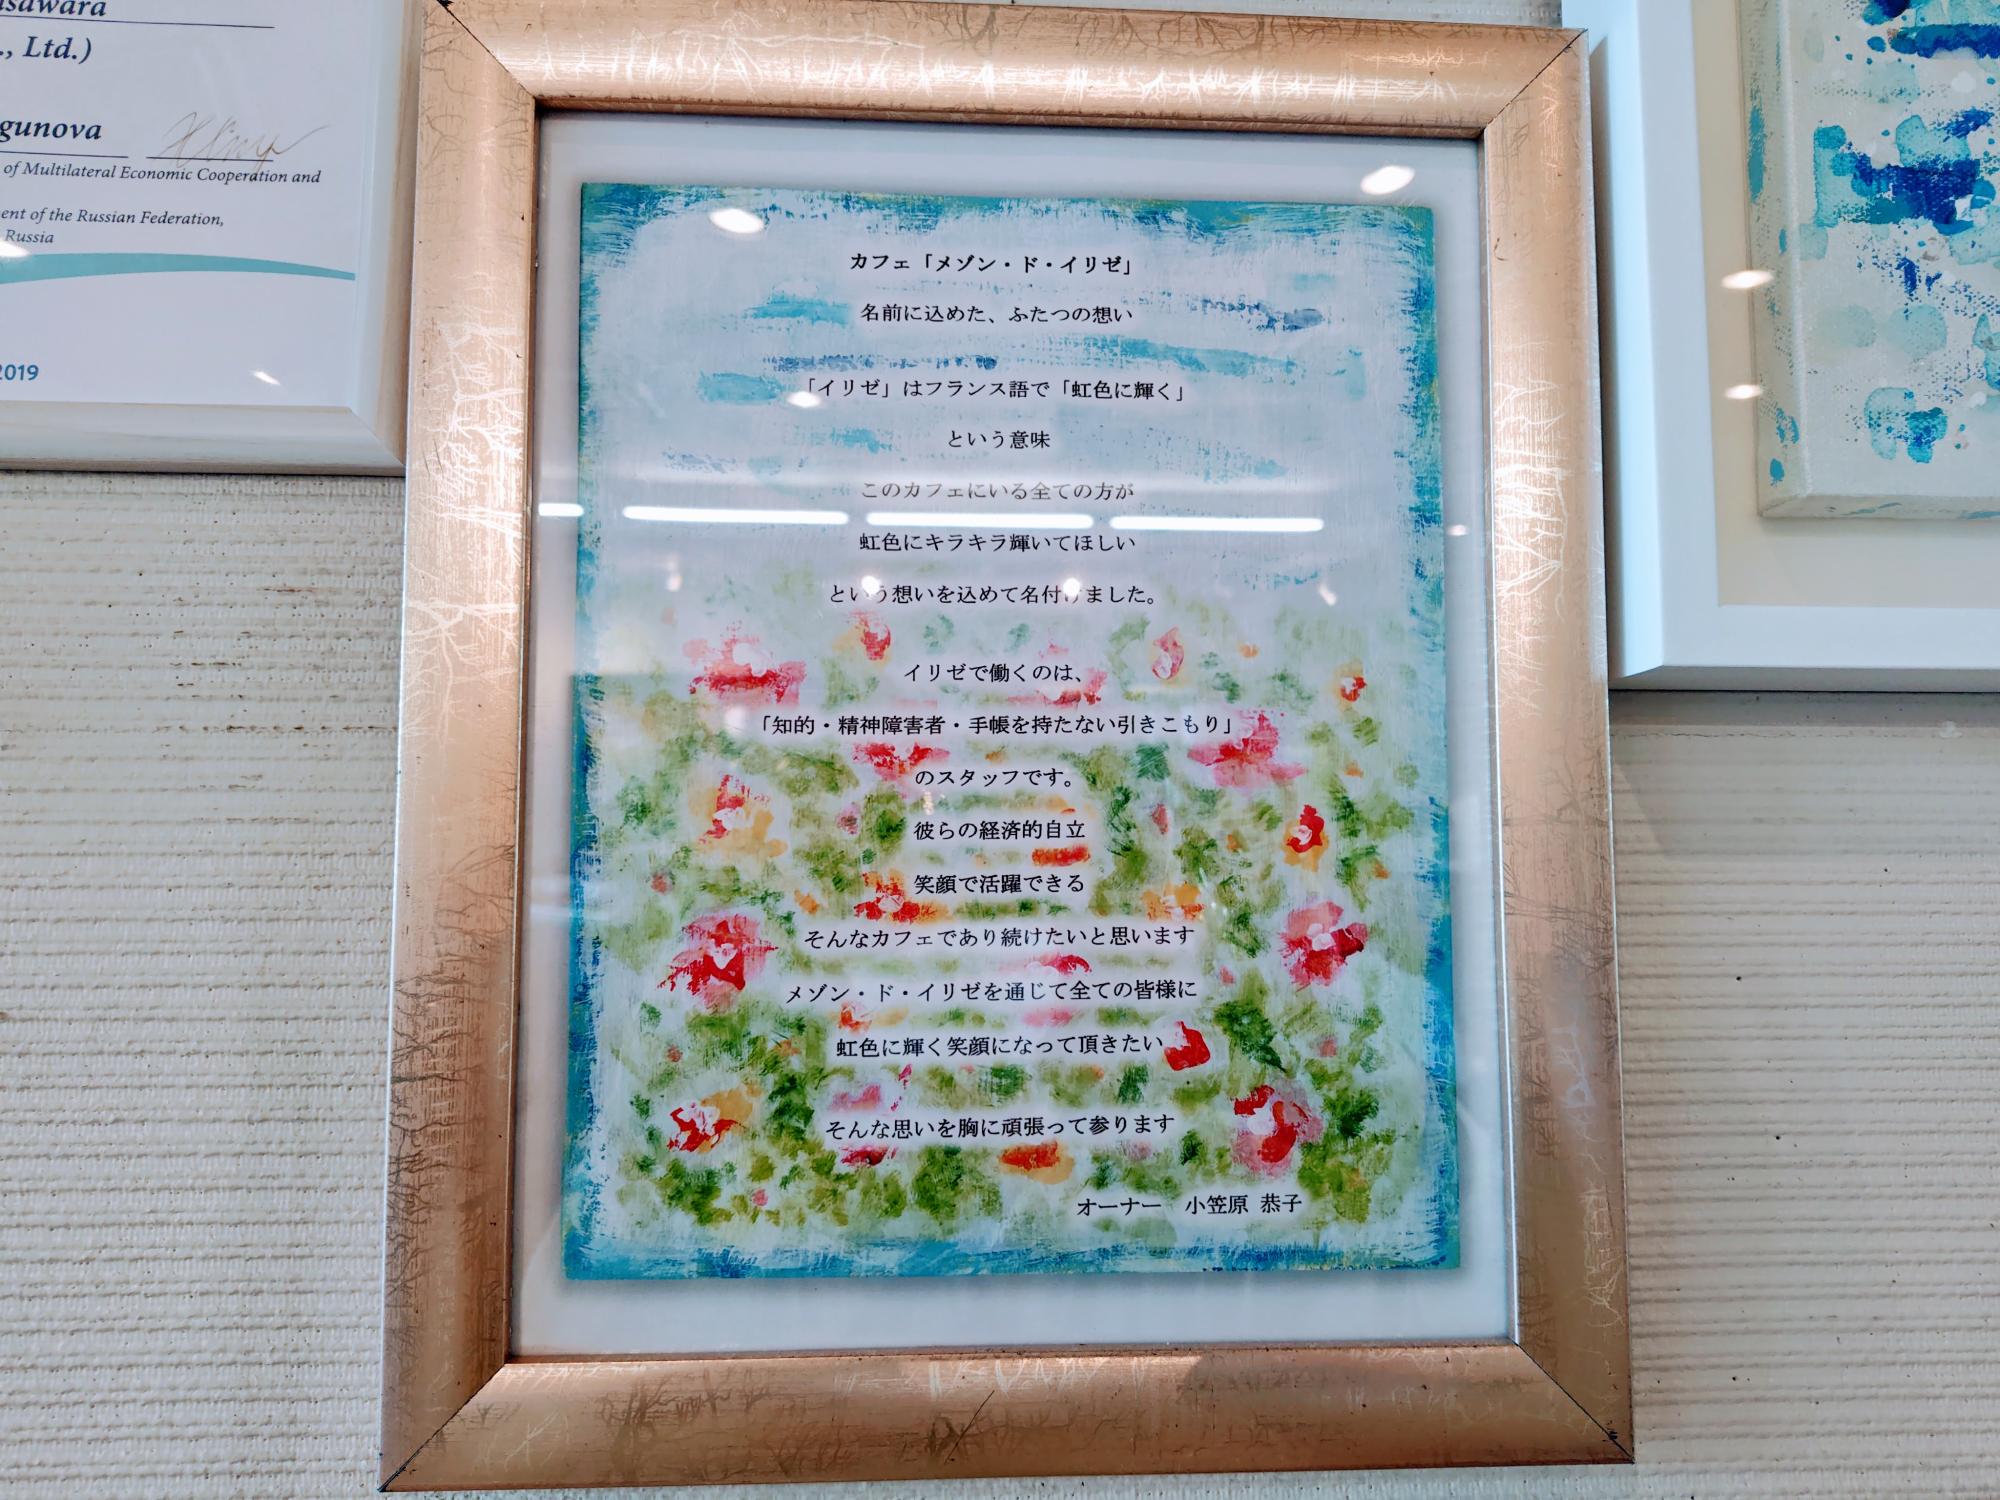 asawara
., Ltd.)
gunova
of Multilateral Economic Cooperation and
ent of the Russian Federation,
Russia
2019
カフェ「メゾン・ド・イリゼ」
名前に込めた、ふたつの想い
「イリゼ」はフランス語で「虹色に輝く」
という意味
このカフェにいる全ての方が
虹色にキラキラ輝いてほしい
という想いを込めて名付けました。
イリゼで働くのは、
「知的・精神障害者・手帳を持たない引きこもり」
のスタッフです。
彼らの経済的自立
笑顔で活躍できる
そんなカフェであり続けたいと思います
メゾン・ド・イリゼを通じて全ての皆様に
虹色に輝く笑顔になって頂きたい
そんな思いを胸に頑張って参ります
オーナー 小笠原 恭子